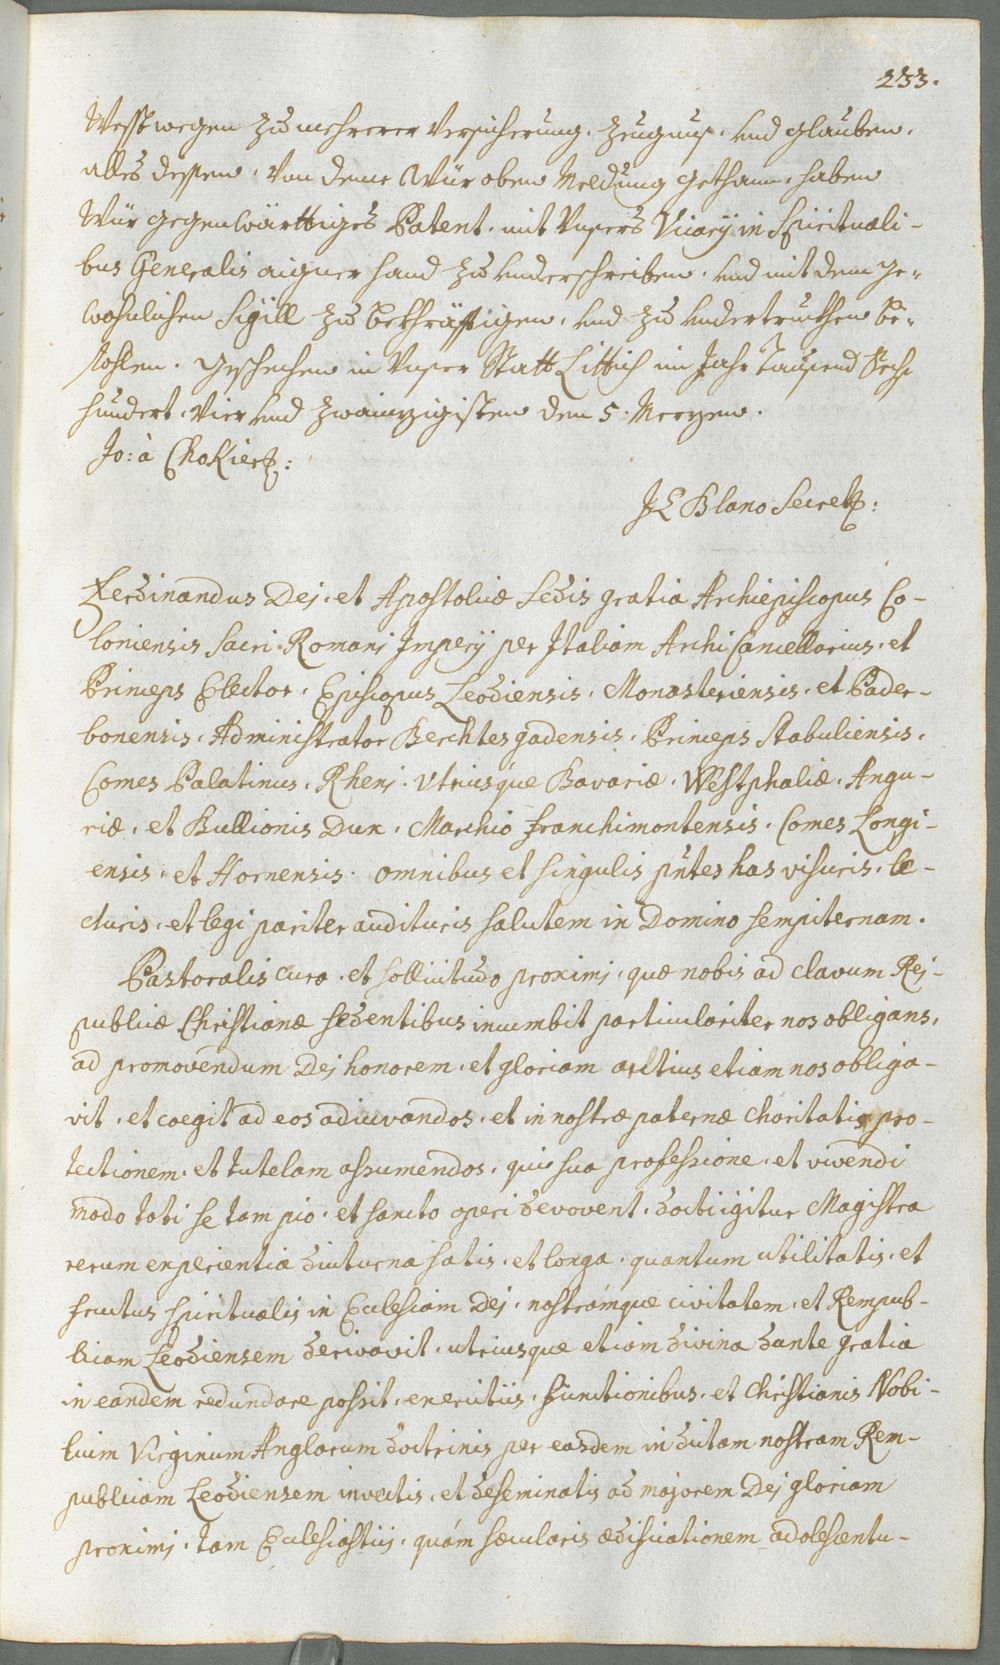 233.
Wesstwegen zu mehrerer Versicherung, Zeugnus, und glauben,
alles dessen, von deme Wür oben Meldung gethann, haben
Wür gegenwärttiges Patent, mit Unsers Vicarÿ in Spirituali-
bus Generalis aigner hand zu underschreiben, und mit dem ge-
wohnlichen Sigill zu bekhräfftigen, und zu undertruckhen be-
fohlen. Geschechen in Unser Statt Littich im Jahr Tausend Sechs
hundert, Vier und zwainzigisten den 5. Merzen.
Jo: à Chokier:
J L Blano Secret:
Ferdinandus Dej, et Apostolicæ Sedis gratia Archiepiscopus Co-
loniensis Sacri Romani Imperÿ per Italiam Archi Cancellarius, et
Princeps Elector, Episcopus Leodiensis, Monasteriensis, et Pader-
bonensis, Administrator Berchtesgadensis, Princeps Stabuliensis,
Comes Palatinus, Rhenj, Utriusque Bavariæ, Westphaliæ, Angu-
riæ, et Bullionis Dux, Marchio Franchimontensis, Comes Longi-
ensis, et Hornensis. omnibus et singulis pñtes has visuris, le-
cturis, et legi pariter audituris salutem in Domino sempiternam.
Pastoralis cura, et sollicitudo proximj, quæ nobis ad clavum Rej-
publicæ Christianæ sedentibus incumbit particulariter nos obligans,
ad promovendum Dej honorem, et gloriam arctius etiam nos obliga-
vit, et coegit ad eos adiuvandos, et in nostræ paternæ charitatis pro-
tectionem, et tutelam assumendos, qui sua professione, et vivendi
modo toti se tam pio, et sancto operi devovent, docti igitur Magistra
rerum experientia diuturna satis, et longa, quantum utilitatis, et
fructus spiritualis in Ecclesiam Dej, nostrámque civitatem, et Rempub-
licam Leodiensem derivavit, utriusque etiam divina dante gratia
in eandem redundare possit, exercitiis, functionibus, et Christianis Nobi-
lium Virginum Anglarum doctrinis per easdem in dictam nostram Rem-
publicam Leodiensem invectis, et deseminatis ad majorem Dej gloriam
proximj, tam Ecclesiastici, quám sæcularis ædificationem adolescentu-